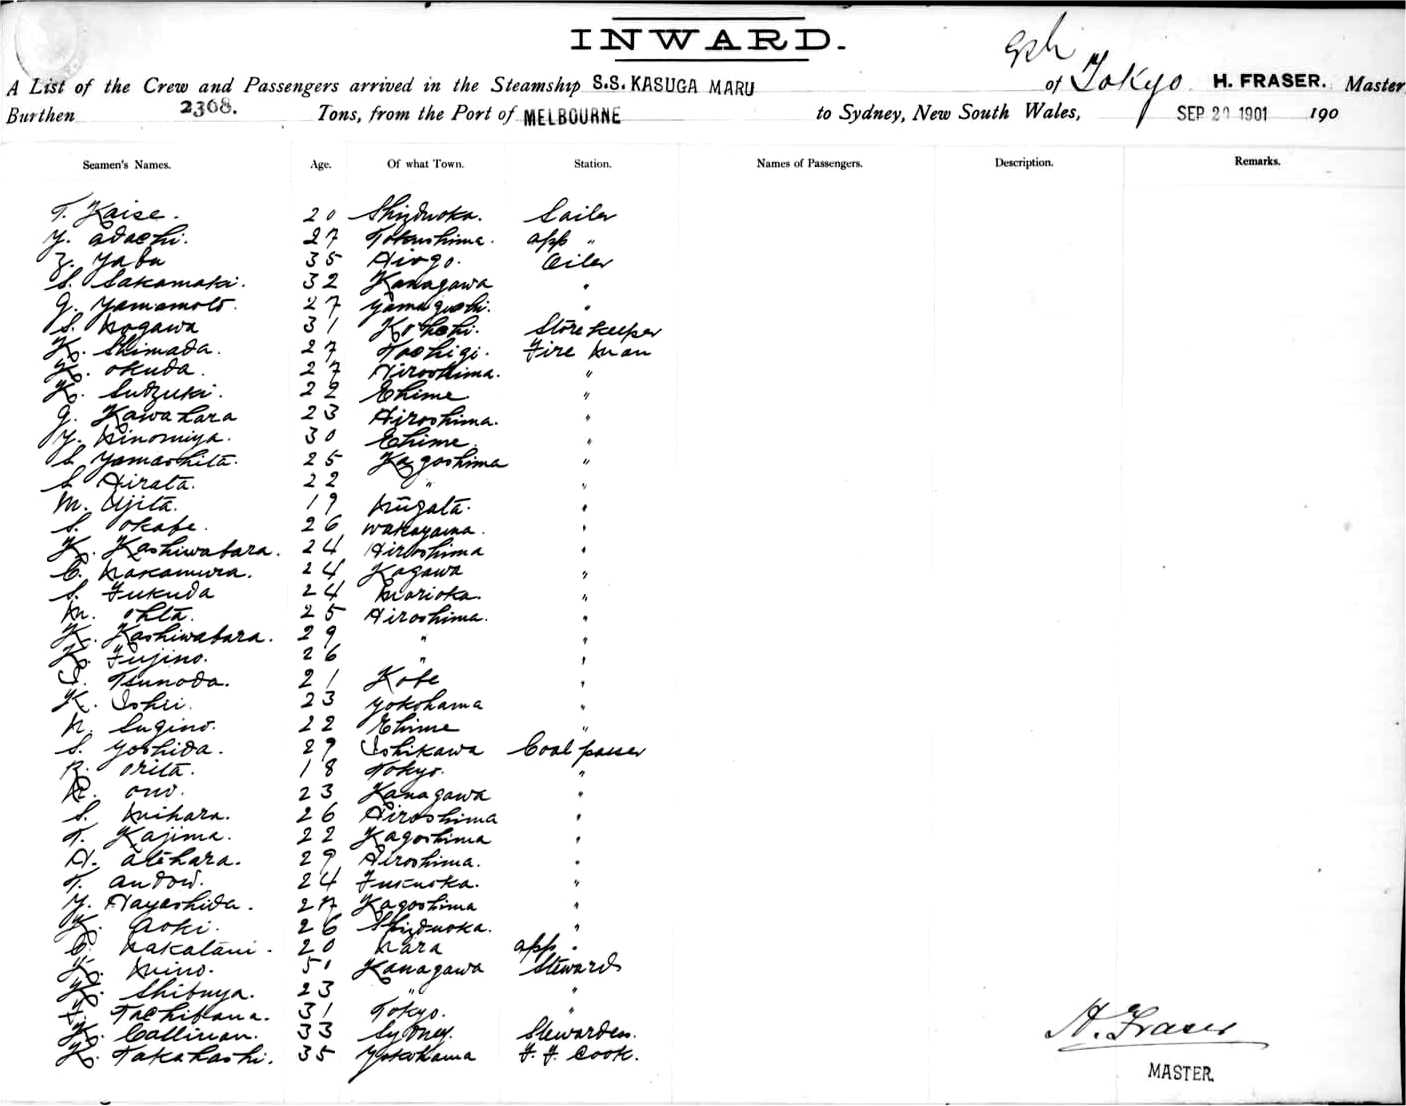 INWARD.
A List of the Crew and Passengers arrived in the Steamship S.S. KASUGA MARU of Tokyo H. FRASER. Master
Burthen 2308. Tons, from the Port of MELBOURNE to Sydney, New South Wales, SEP 20 1901 190
Seamen's Names. Age. Of what Town. Station. Names of Passengers. Description. Remarks.
T. Kaise. 20 Shidzuoka. Sailor
Y. Adachi. 27 Tokushima. app "
Z. Yabu 35 Hiogo. Oiler
S. Sakamaki. 32 Kanagawa "
G. Yamamoto. 27 Yamaguchi. "
S. Nogawa 31 Kochi. Store keeper
K. Shimada. 27 Tochigi. Fire man
K. Okuda. 27 Hiroshima. "
K. Sudzuki. 22 Ehime "
G. Kawahara 23 Hiroshima. "
Y. Ninomiya. 30 Ehime. "
S. Yamashita. 25 Kagoshima "
S. Hirata. 22 " "
M. Ujita. 19 Niigata. "
S. Okabe. 26 Wakayama. "
K. Kashiwabara. 24 Hiroshima "
C. Nakamura. 24 Kagawa "
S. Fukuda 24 Morioka. "
M. Ohta. 25 Hiroshima. "
K. Kashiwabara. 29 " "
K. Fujino. 26 " "
Tsunoda. 21 Kobe "
K. Ishii. 23 Yokohama "
N. Sugino. 22 Ehime "
S. Yoshida. 29 Ishikawa Coal passer
R. Orita. 18 Tokyo. "
K. Ono. 23 Kanagawa "
S. Mihara. 26 Hiroshima "
T. Kajima. 22 Kagoshima "
H. Atehara. 29 Hiroshima. "
T. Andow. 24 Fukuoka. "
Y. Hayashida. 27 Kagoshima "
K. Aoki. 26 Shidzuoka. "
C. Nakatani. 20 Nara app "
K. Mino. 50 Kanagawa Steward
K. Shibuya. 23 " "
Tachibana. 31 Tokyo. "
K. Callinan. 33 Sydney. Stewardess.
K. Takahashi. 35 Yokohama F. F. Cook.
H. Fraser
MASTER.